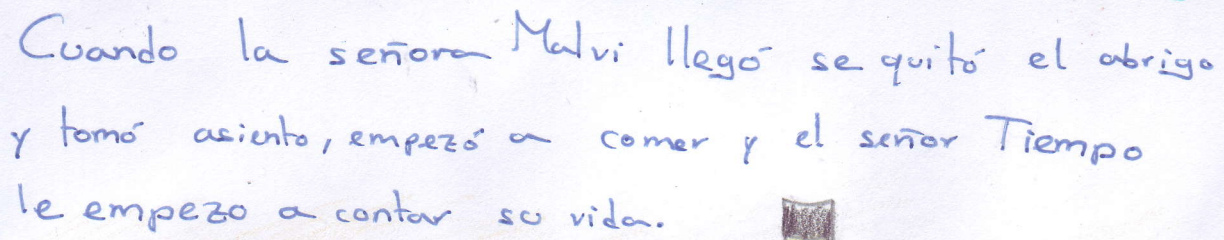 Cuando la señora Malvi llegó se quitó el abrigo
y tomó asiento, empezó a comer y el señor Tiempo
le empezo a contar su vida.